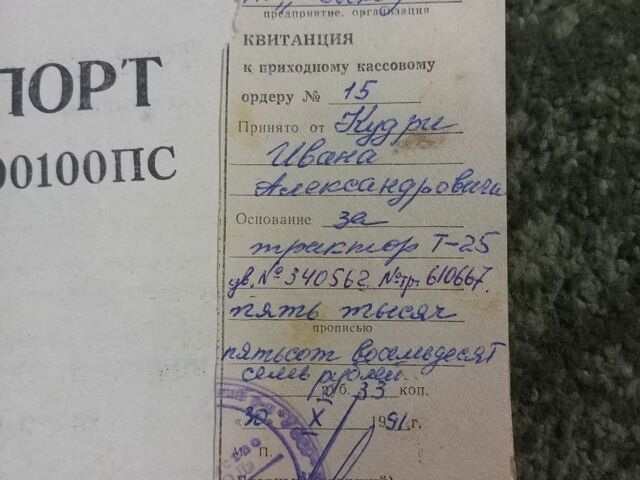 ПОРТ
00100ПС
предприятие, организация
КВИТАНЦИЯ
к приходному кассовому
ордеру № 15
Принято от Кудри
Ивана
Александровича
Основание за
трактор Т-25
дв. № 340562, № тр. 610667.
пять тысяч
прописью
пятьсот восемьдесят
семь рублей
руб. 33 коп.
«30» X 1991 г.
М. П.